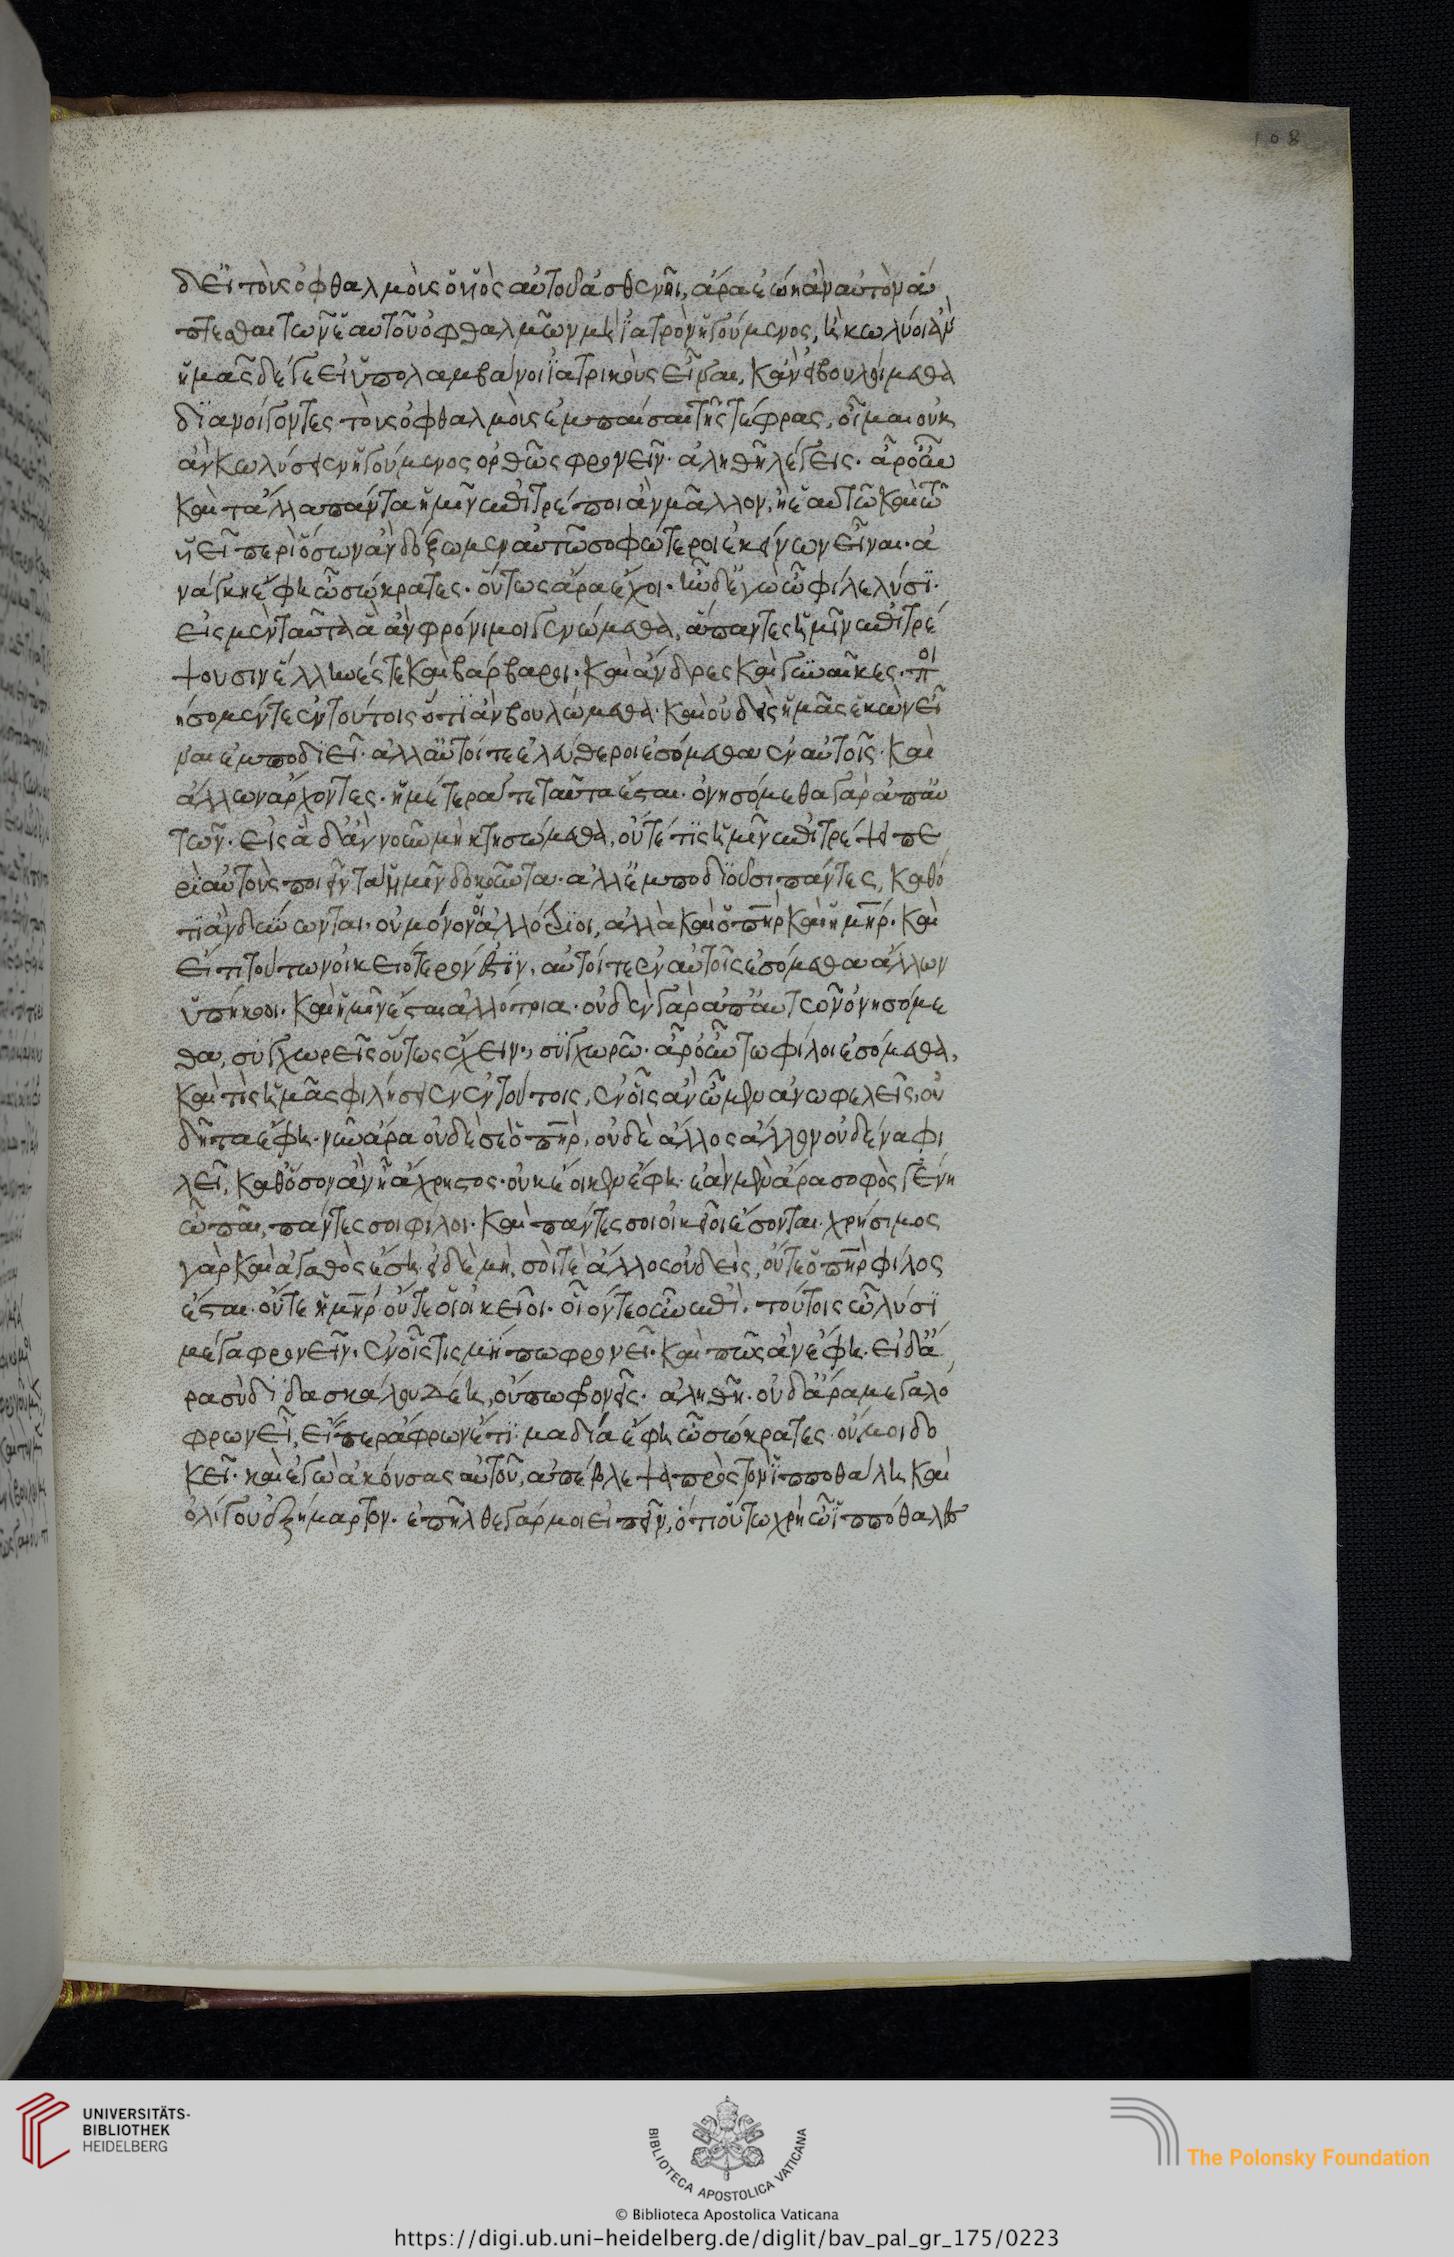 108
δὲ εἰ τοὺς ὀφθαλμοὺς ὁ υἱὸς αὐτοῦ ἀσθενῆι, ἆρα ἐώιη ἂν αὐτὸν ἅ
πτεσθαι τῶν ἑαυτοῦ ὀφθαλμῶν μὴ ἰατρὸν ἡγούμενος, ἢ κωλύοι ἄν
ἡμᾶς δέ γε εἰ ὑπολαμβάνοι ἰατρικοὺς εἶναι, κἂν εἰ βουλοίμεθα
διανοίγοντες τοὺς ὀφθαλμοὺς ἐμπάσαι τῆς τέφρας, οἶμαι οὐκ
ἂν κωλύσειεν ἡγούμενος ὀρθῶς φρονεῖν· ἀληθῆ λέγεις· ἆρ' οὖν
καὶ τἄλλα πάντα ἡμῖν ἐπιτρέποι ἂν μᾶλλον, ἢ ἑαυτῶ καὶ τῶ
ὑεῖ περὶ ὅσων ἂν δόξωμεν αὐτῶ σοφώτεροι ἐκείνων εἶναι· ἀ
νάγκη ἔφη ὦ σώκρατες· οὕτως ἄρα ἔχοι· ἦν δ' ἐγὼ ὦ φίλε λύσι·
εἰς μὲν ταῦτα ἃ ἂν φρόνιμοι γενώμεθα, ἅπαντες ἡμῖν ἐπιτρέ
ψουσιν ἕλληνές τε καὶ βάρβαροι· καὶ ἄνδρες καὶ γυναῖκες· ποι
ήσομέν τε ἐν τούτοις ὅτι ἂν βουλώμεθα· καὶ οὐδεὶς ἡμᾶς ἑκὼν εἶ
ναι ἐμποδιεῖ· ἀλλ' αὐτοί τε ἐλεύθεροι ἐσόμεθα ἐν αὐτοῖς· καὶ
ἄλλων ἄρχοντες· ἡμέτερά τε ταῦτα ἔσται· ὀνησόμεθα γὰρ ἀπ' αὐ
τῶν· εἰς ἃ δ' ἂν νοῦν μὴ κτησώμεθα, οὔτέ τις ἡμῖν ἐπιτρέψει πε
ρὶ αὐτοὺς ποιεῖν τὰ ἡμῖν δοκοῦντα· ἀλλ' ἐμποδιοῦσι πάντες, καθό
τι ἂν δύνωνται· οὐ μόνον οἱ ἀλλότριοι, ἀλλὰ καὶ ὁ πηρ καὶ ἡ μηρ· καὶ
εἴ τι τούτων οἰκειότερόν ἐστιν, αὐτοί τε ἐν αὐτοῖς ἐσόμεθα ἄλλων
ὑπήκοοι· καὶ ἡμῖν ἔσται ἀλλότρια· οὐδὲν γὰρ ἀπ' αὐτῶν ὀνησόμε
θα, συγχωρεῖς οὕτως ἔχειν· συγχωρῶ· ἆρ' οὖν τω φίλοι ἐσόμεθα,
καὶ τὶς ἡμᾶς φιλήσει ἐν ἐν τούτοις, ἐν οἷς ἂν ὦμεν ἀνωφελεῖς, οὐ
δῆτα ἔφη· νῦν ἄρα οὐδὲ σὲ ὁ πηρ, οὐδὲ ἄλλος ἄλλον οὐδένα φι
λεῖ, καθ' ὅσον ἂν ἦ ἄχρηστος· οὐκ ἔοικεν ἔφη· ἐὰν μὲν ἄρα σοφὸς γένη
ὦ παῖ, πάντες σοι φίλοι· καὶ πάντες σοι οἰκεῖοι ἔσονται· χρήσιμος
γὰρ καὶ ἀγαθὸς ἔση· εἰ δὲ μὴ, σοί τε ἄλλος οὐδεὶς, οὔτε ὁ πηρ φίλος
ἔσται· οὔτε ἡ μηρ οὔτε οἱ οἰκεῖοι· οἷόν τε οὖν ἐπὶ τούτοις ὦ λύσι
μέγα φρονεῖν· ἐν οἷς τις μή πω φρονεῖ· καὶ πῶς ἂν ἔφη· εἰ δ' ἄ
ρα σὺ διδασκάλου δέη, οὔπω φρονεῖς· ἀληθῆ· οὐδ' ἄρα μεγαλό
φρων εἶ, εἴπερ ἄφρων ἔτι· μὰ δία ἔφη ὦ σώκρατες· οὔ μοι δο
κεῖ· καὶ ἐγὼ ἀκούσας αὐτοῦ, ἀπέβλεψα πρὸς τὸν ἱπποθάλη καὶ
ὀλίγου ἐξήμαρτον· ἐπῆλθε γάρ μοι εἰπεῖν, ὅτι οὕτω χρὴ ὦ ἱππόθαλες
UNIVERSITÄTS-
BIBLIOTHEK
HEIDELBERG
BIBLIOTECA APOSTOLICA VATICANA
© Biblioteca Apostolica Vaticana
The Polonsky Foundation
https://digi.ub.uni-heidelberg.de/diglit/bav_pal_gr_175/0223